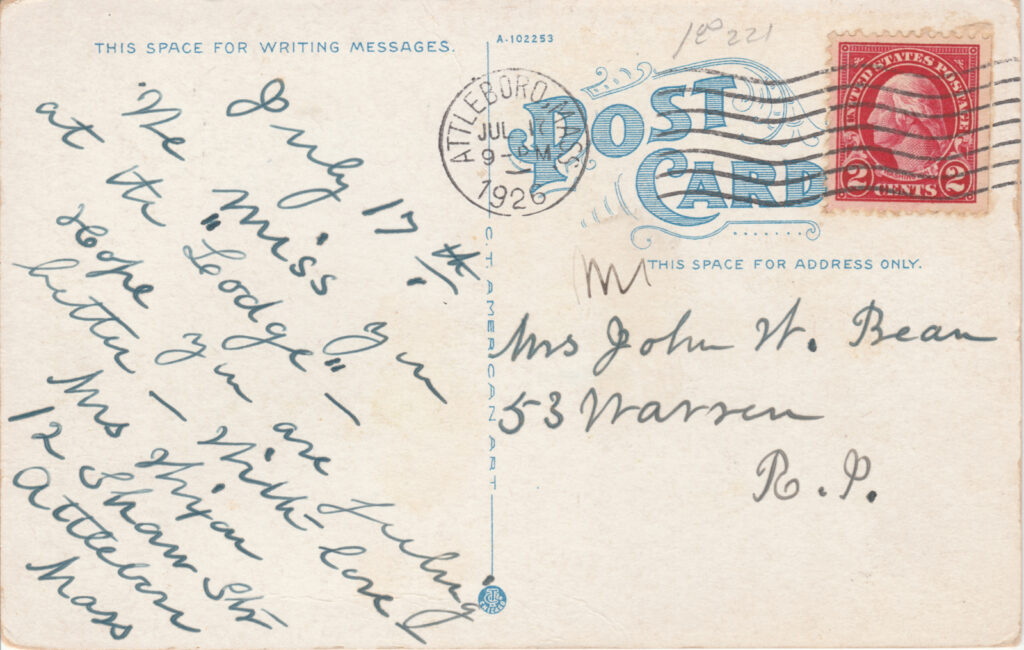 THIS SPACE FOR WRITING MESSAGES.
A-102253
221
ATTLEBORO, MASS.
JUL 17
9-PM
1926
POST CARD
UNITED STATES POSTAGE
WASHINGTON
2 CENTS 2
July 17th
We Miss you
at the "Lodge" –
Hope you are feeling
better – With love –
Mrs
12 Shaw Str
Attleboro
Mass
C.T. AMERICAN ART
CHICAGO
THIS SPACE FOR ADDRESS ONLY.
Mrs John W. Bean
53 Warren
R.P.